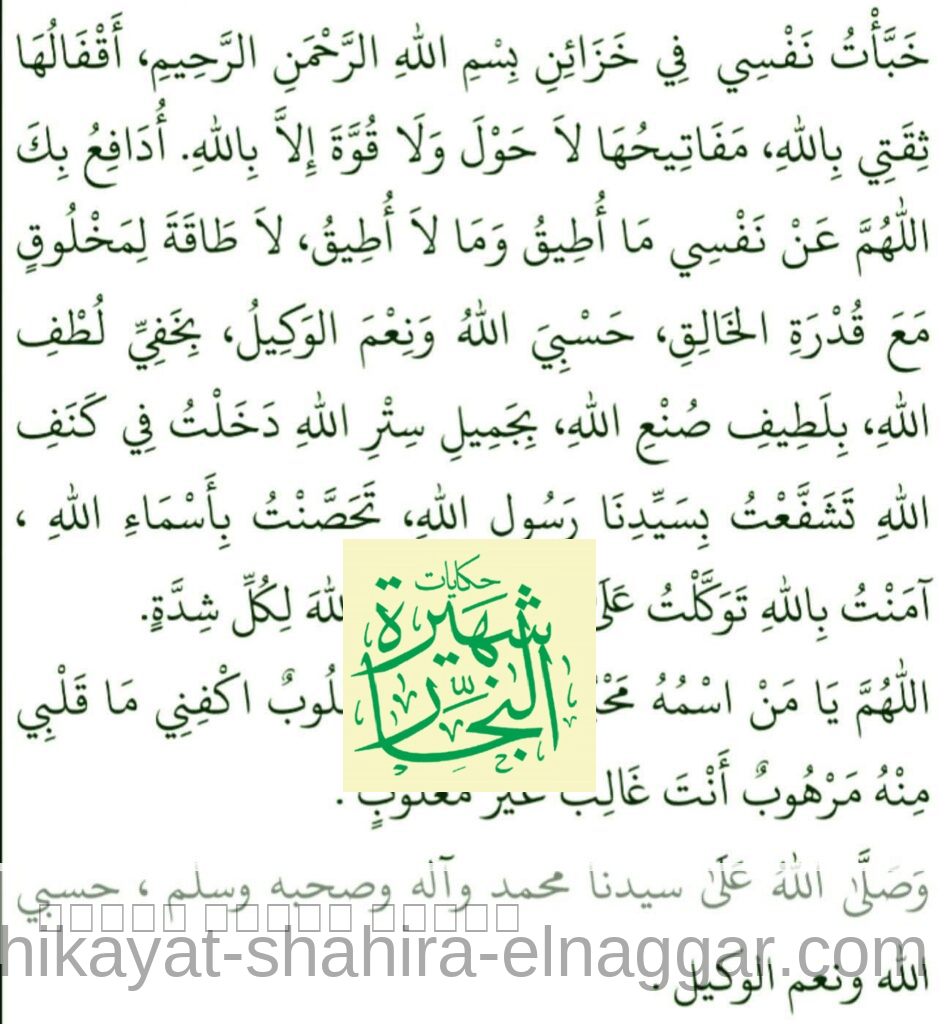 خَبَّأْتُ نَفْسِي فِي خَزَائِنِ بِسْمِ اللهِ الرَّحْمَنِ الرَّحِيمِ، أَقْفَالُهَا
ثِقَتِي بِاللهِ، مَفَاتِيحُهَا لاَ حَوْلَ وَلَا قُوَّةَ إِلاَّ بِاللهِ. أُدَافِعُ بِكَ
اللّٰهُمَّ عَنْ نَفْسِي مَا أُطِيقُ وَمَا لاَ أُطِيقُ، لاَ طَاقَةَ لِمَخْلُوقٍ
مَعَ قُدْرَةِ الخَالِقِ، حَسْبِيَ اللهُ وَنِعْمَ الوَكِيلُ، بِخَفِيِّ لُطْفِ
اللهِ، بِلَطِيفِ صُنْعِ اللهِ، بِجَمِيلِ سِتْرِ اللهِ دَخَلْتُ فِي كَنَفِ
اللهِ تَشَفَّعْتُ بِسَيِّدِنَا رَسُولِ اللهِ، تَحَصَّنْتُ بِأَسْمَاءِ اللهِ ،
آمَنْتُ بِاللهِ تَوَكَّلْتُ عَلَى لِكُلِّ شِدَّةٍ.
اللّٰهُمَّ يَا مَنْ اسْمُهُ اكْفِنِي مَا قَلْبِي
مِنْهُ مَرْهُوبٌ أَنْتَ غَالِبٌ غَيْرُ مَغْلُوبٍ .
وَصَلَّى اللهُ عَلَى سيدنا محمد وآله وصحبه وسلم ، حسبي
الله ونعم الوكيل .
حكايات
شهيرة
النجار
hikayat-shahira-elnaggar.com